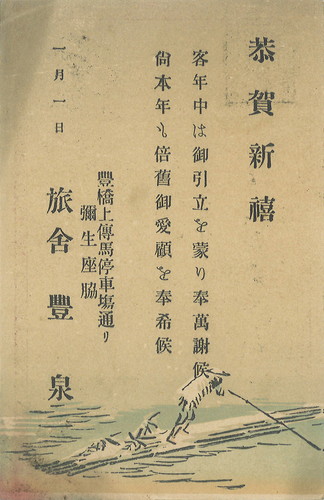 恭賀新禧
客年中は御引立を蒙り奉萬謝候
尙本年も倍舊御愛顧を奉希候
一月一日
豐橋上傳馬停車塲通り
彌生座脇
旅舍豐泉